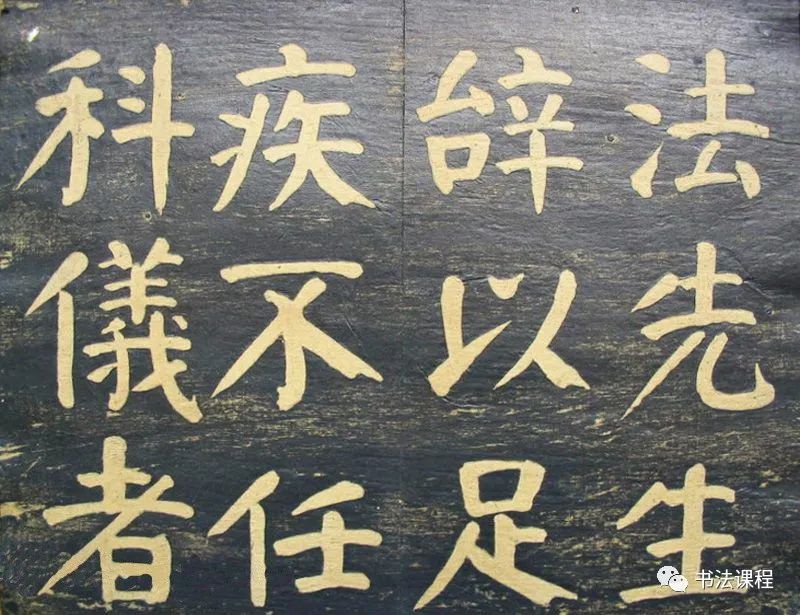 法先生
辝以足
疾不任
科儀者
书法课程